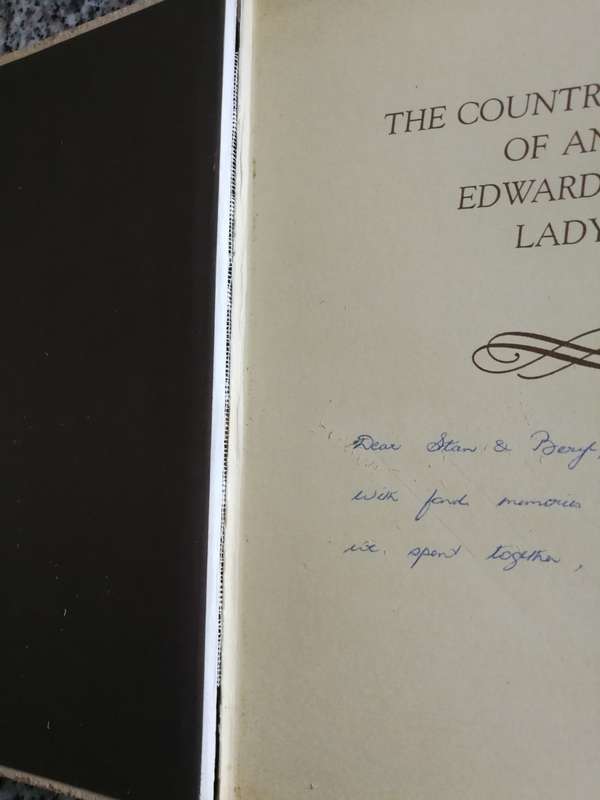 THE COUNTR
OF AN
EDWARD
LADY
Dear Stan & Beryl,
with fond memories
we spent together,